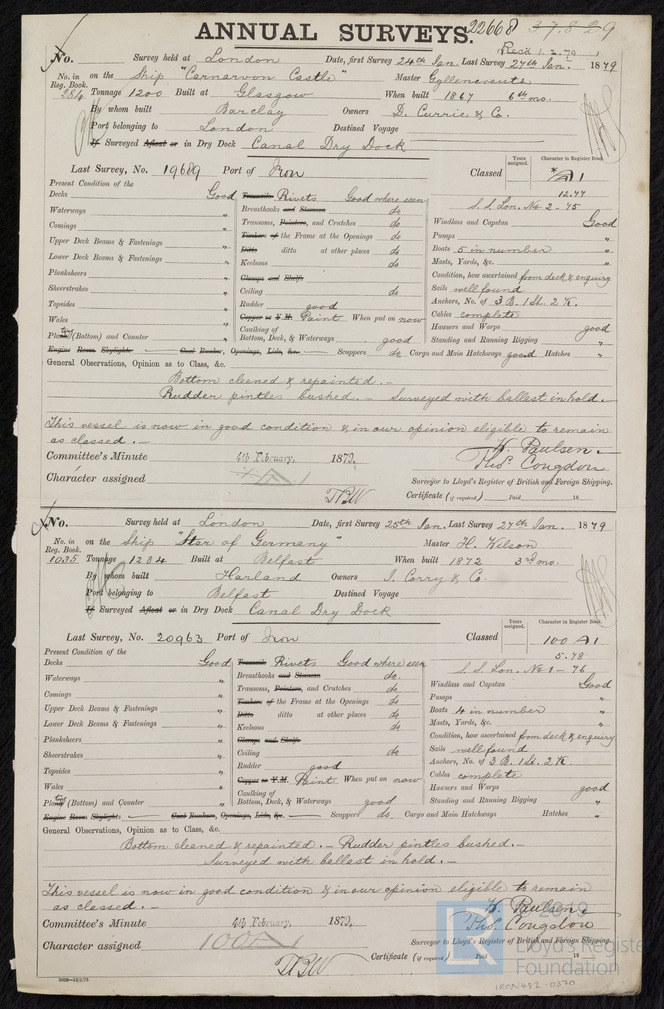 ANNUAL SURVEYS. 22668 37829
Rec'd 1.2.79
No. Survey held at London Date, first Survey 24th Jan. Last Survey 27th Jan. 1879
No. in Reg. Book. 284 on the Ship "Carnarvon Castle" Master Gyllencreutz
Tonnage 1200 Built at Glasgow When built 1867 6th mo.
By whom built Barclay Owners D. Currie & Co.
Port belonging to London Destined Voyage
If Surveyed Afloat or in Dry Dock Canal Dry Dock
Last Survey, No. 19689 Port of Iron Classed Years assigned. Character in Register Book
A1
12.77
S.S. Lon. No 2 - 75
Present Condition of the
Decks Good Treenails Rivets Good where seen
Waterways " Breasthooks and Stemson do Windlass and Capstan Good
Comings " Transoms, Pointers, and Crutches do Pumps "
Upper Deck Beams & Fastenings " Timbers of the Frame at the Openings do Boats 5 in number
Lower Deck Beams & Fastenings " Ditto ditto at other places do Masts, Yards, &c. "
Planksheers " Keelsons do Condition, how ascertained from deck & enquiry
Sheerstrakes " Clamps and Shelfs Sails well found
Topsides " Ceiling do Anchors, No. of 3 B. 1 St. 2 K.
Wales " Rudder good Cables complete
Copper or Y.M. Paint When put on now Hawsers and Warps good
Plating (Bottom) and Counter " Caulking of Bottom, Deck, & Waterways good Standing and Running Rigging "
Engine Room Skylights Coal Bunker, Openings, Lids, &c. Scuppers do Cargo and Main Hatchways good Hatches "
General Observations, Opinion as to Class, &c.
Bottom cleaned & repainted. —
Rudder pintles bushed. — Surveyed with ballast in hold. —
This vessel is now in good condition & in our opinion eligible to remain
as classed. —
H. Paulsen. —
Committee's Minute 4th February, 1879.
Thos. Congdon
Character assigned A1
Surveyor to Lloyd's Register of British and Foreign Shipping.
TBW Certificate (if required) Paid 18
No. Survey held at London Date, first Survey 25th Jan. Last Survey 27th Jan. 1879
No. in Reg. Book. 1035 on the Ship "Star of Germany" Master H. Wilson
Tonnage 1284 Built at Belfast When built 1872 3rd mo.
By whom built Harland Owners J. Corry & Co.
Port belonging to Belfast Destined Voyage
If Surveyed Afloat or in Dry Dock Canal Dry Dock
Last Survey, No. 20963 Port of Iron Classed Years assigned. Character in Register Book
100 A1
5.78
S.S. Lon. No 1 - 76
Present Condition of the
Decks Good Treenails Rivets Good where seen
Waterways " Breasthooks and Stemson do. Windlass and Capstan Good
Comings " Transoms, Pointers, and Crutches do Pumps "
Upper Deck Beams & Fastenings " Timbers of the Frame at the Openings do Boats 4 in number
Lower Deck Beams & Fastenings " Ditto ditto at other places do Masts, Yards, &c. "
Planksheers " Keelsons do Condition, how ascertained from deck & enquiry
Sheerstrakes " Clamps and Shelfs Sails well found
Topsides " Ceiling do Anchors, No. of 3 B. 1 St. 2 K.
Wales " Rudder good Cables complete
Copper or Y.M. Paint When put on now Hawsers and Warps good
Plating (Bottom) and Counter " Caulking of Bottom, Deck, & Waterways good Standing and Running Rigging "
Engine Room Skylights Coal Bunkers, Openings, Lids, &c. Scuppers do Cargo and Main Hatchways Hatches "
General Observations, Opinion as to Class, &c.
Bottom cleaned & repainted. — Rudder pintles bushed. —
Surveyed with ballast in hold. —
This vessel is now in good condition & in our opinion eligible to remain
as classed. —
H. Paulsen.
Committee's Minute 4th February, 1879.
Thos. Congdon
Character assigned 100A1
Surveyor to Lloyd's Register of British and Foreign Shipping.
TBW Certificate (if required) Paid 18
© 2019
Lloyd's Register
Foundation
IRON482-0370